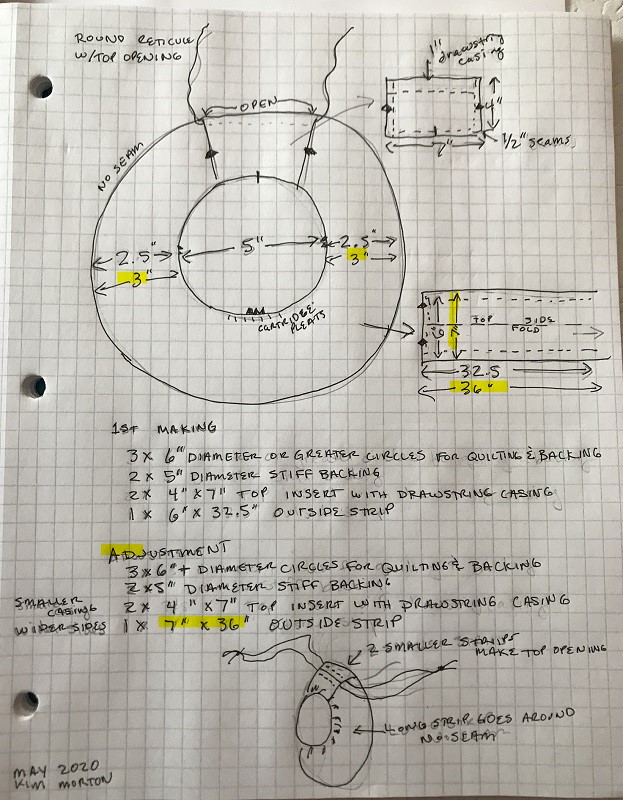 ROUND RETICULE
W/TOP OPENING
1" drawstring
casing
OPEN
4"
7"
1/2" seams
NO SEAM
2.5"
5"
2.5"
3"
3"
CARTRIDGE
PLEATS
6"
7"
TOP SIDE
FOLD
32.5
36"
1ST MAKING
3 x 6" DIAMETER OR GREATER CIRCLES FOR QUILTING & BACKING
2 x 5" DIAMETER STIFF BACKING
2 x 4" x 7" TOP INSERT WITH DRAWSTRING CASING
1 x 6" x 32.5" OUTSIDE STRIP
ADJUSTMENT
3 x 6"+ DIAMETER CIRCLES FOR QUILTING & BACKING
2 x 5" DIAMETER STIFF BACKING
SMALLER
CASING
2 x 4" x 7" TOP INSERT WITH DRAWSTRING CASING
WIDER SIDES
1 x 7" x 36" OUTSIDE STRIP
2 SMALLER STRIPS
MAKE TOP OPENING
LONG STRIP GOES AROUND
NO SEAM
MAY 2020
KIM MORTON